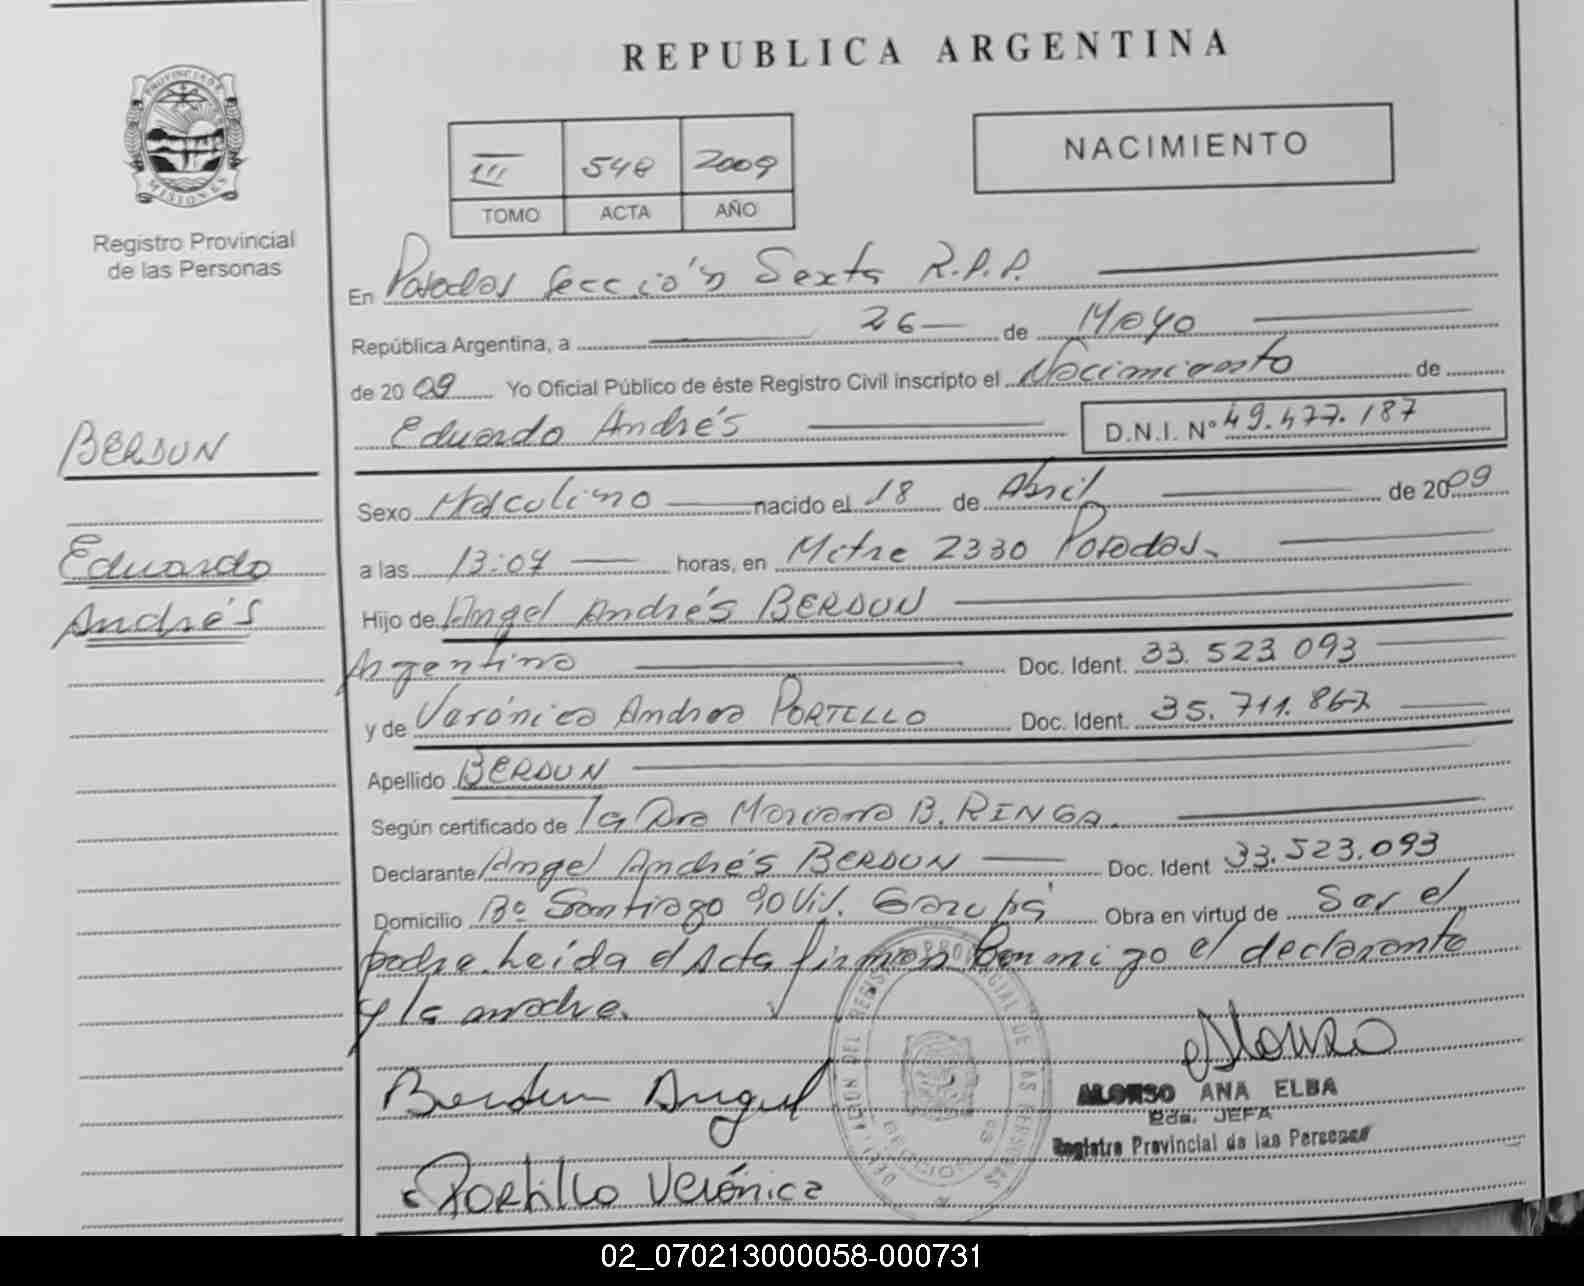 REPUBLICA ARGENTINA
PROVINCIA DE
MISIONES
Registro Provincial
de las Personas
III 548 2009
TOMO ACTA AÑO
NACIMIENTO
En Posadas Sección Sexta R.P.P.
República Argentina, a 26 de Mayo
de 2009 Yo Oficial Público de éste Registro Civil inscripto el Nacimiento de
Eduardo Andrés D.N.I. Nº 49.477.187
BERDUN
Eduardo
Andrés
Sexo Masculino nacido el 18 de Abril de 2009
a las 13:07 horas, en Mitre 2330 Posadas.
Hijo de Angel Andrés BERDUN
Argentino Doc. Ident. 33.523.093
y de Verónica Andrea PORTILLO Doc. Ident. 35.711.867
Apellido BERDUN
Según certificado de la Dra Mariana B. RINGA.
Declarante Angel Andrés BERDUN Doc. Ident 33.523.093
Domicilio Bº Santiago 90 Viv. Garupá Obra en virtud de Ser el
padre. Leída el Acta firman Conmigo el declarante
y la madre.
Alonso
ALONSO ANA ELBA
Eda. JEFA
Registro Provincial de las Personas
Berdun Angel
Portillo Verónica
02_070213000058-000731